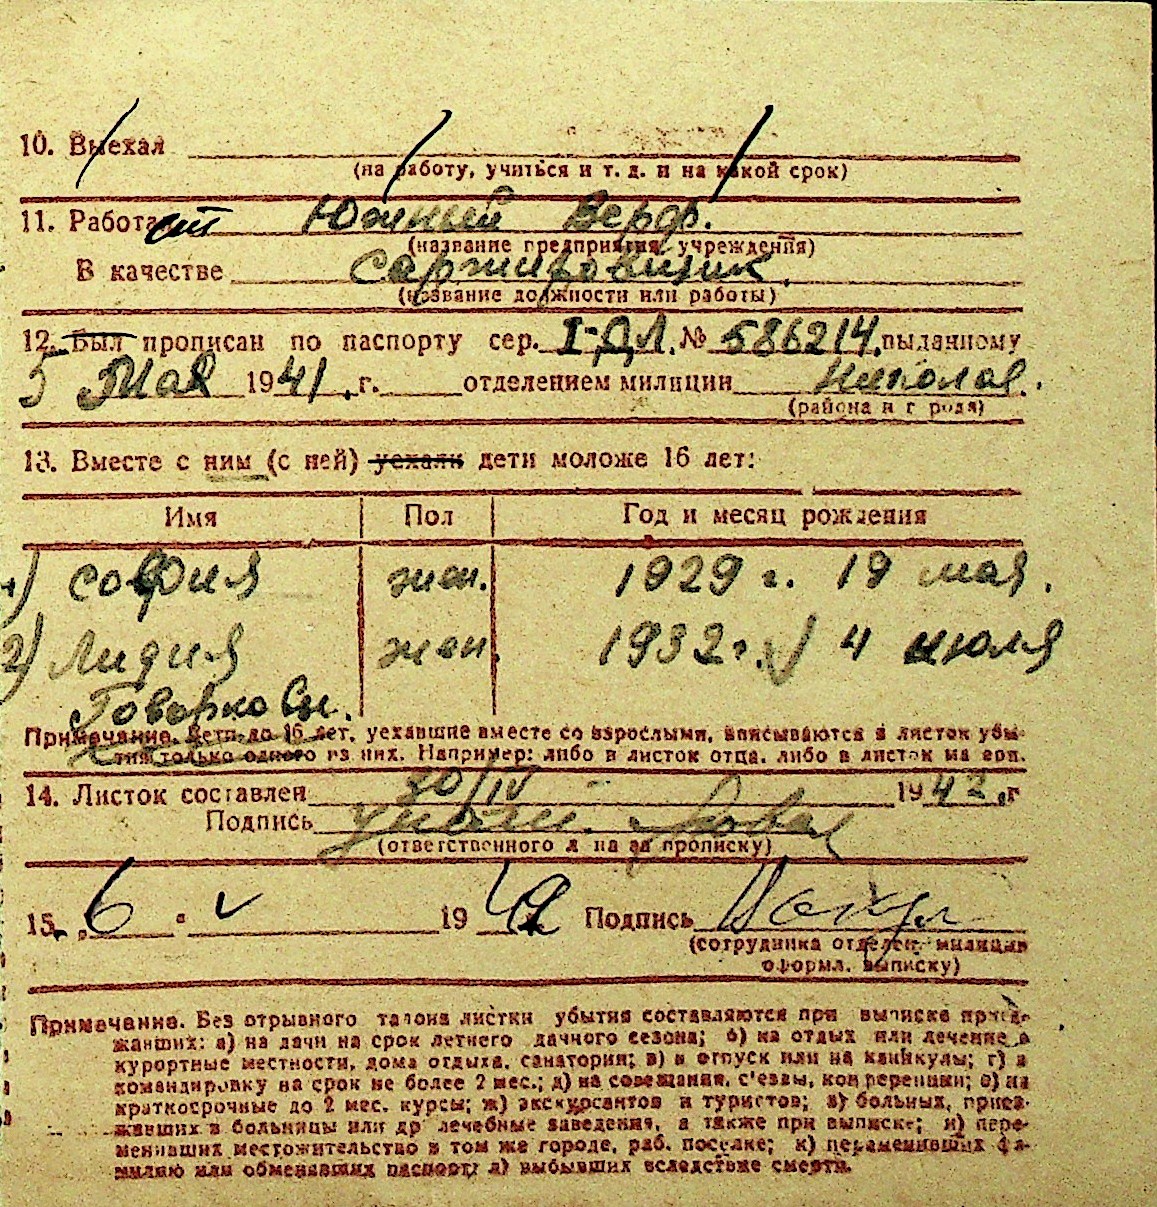 10. Выехал
(на работу, учиться и т. д. и на какой срок)
11. Работает Южный Верф.
(название предприятия, учреждения)
В качестве
(название должности или работы)
12. Был прописан по паспорту сер. I-ДЛ. № 586214, выданному
5 Мая 1941 г. отделением милиции Николаев.
(района и города)
13. Вместе с ним (с ней) уехали дети моложе 16 лет:
Имя Пол Год и месяц рождения
1) София жен. 1929 г. 19 мая.
2) Лидия жен. 1932 г. 4 июля
Говорко
Примечание. Дети до 16 лет, уехавшие вместе со взрослыми, вписываются в листок убы-
тия только одного из них. Например: либо в листок отца, либо в листок матери.
14. Листок составлен 30/IV 1942 г
Подпись
(ответственного лица за прописку)
15. „6" V 1942 Подпись
(сотрудника отделен. милиции
оформл. выписку)
Примечание. Без отрывного талона листки убытия составляются при выписке приез-
жавших: а) на дачи на срок летнего дачного сезона; б) на отдых или лечение в
курортные местности, дома отдыха, санатории; в) в отпуск или на каникулы; г) в
командировку на срок не более 2 мес.; д) на совещания, с'езды, конференции; е) на
краткосрочные до 2 мес. курсы; ж) экскурсантов и туристов; з) больных, приез-
жавших в больницы или др лечебные заведения, а также при выписке; и) пере-
менивших местожительство в том же городе, раб. поселке; к) переменивших фа-
милию или обменявших паспорт; л) выбывших вследствие смерти.